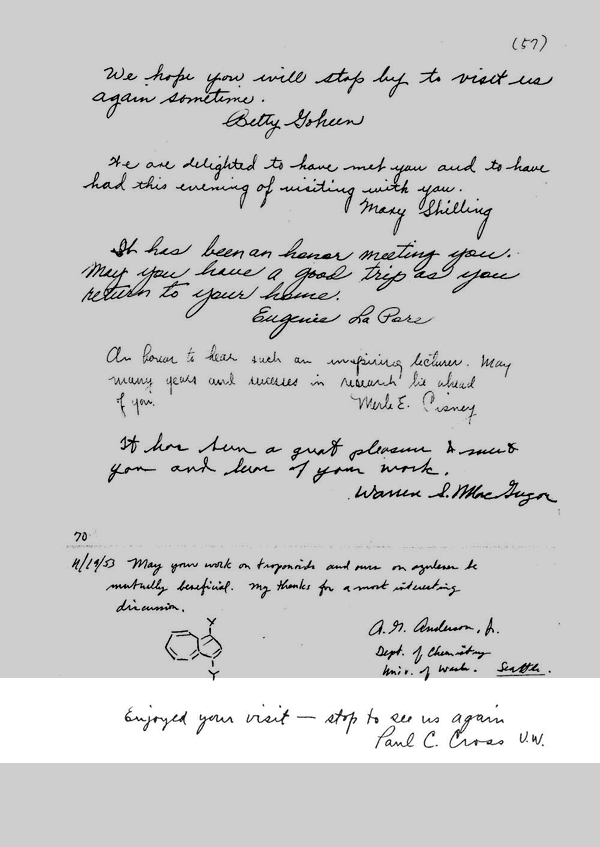 (57)
We hope you will stop by to visit us
again sometime.
Betty Goheen
We are delighted to have met you and to have
had this evening of visiting with you.
Mary Shilling
It has been an honor meeting you.
May you have a good trip as you
return to your home.
Eugenie La Pore
An honor to hear such an inspiring lecturer. May
many years and successes in research lie ahead
of you.
Merle E. Cisney
It has been a great pleasure to meet
you and hear of your work.
Warren S. MacGregor
70
11/19/53 May your work on troponoids and ours on azulenes be
mutually beneficial. My thanks for a most interesting
discussion.
Y
Y
A. G. Anderson, Jr.
Dept. of Chemistry
Univ. of Wash. Seattle.
Enjoyed your visit — stop to see us again
Paul C. Cross U.W.